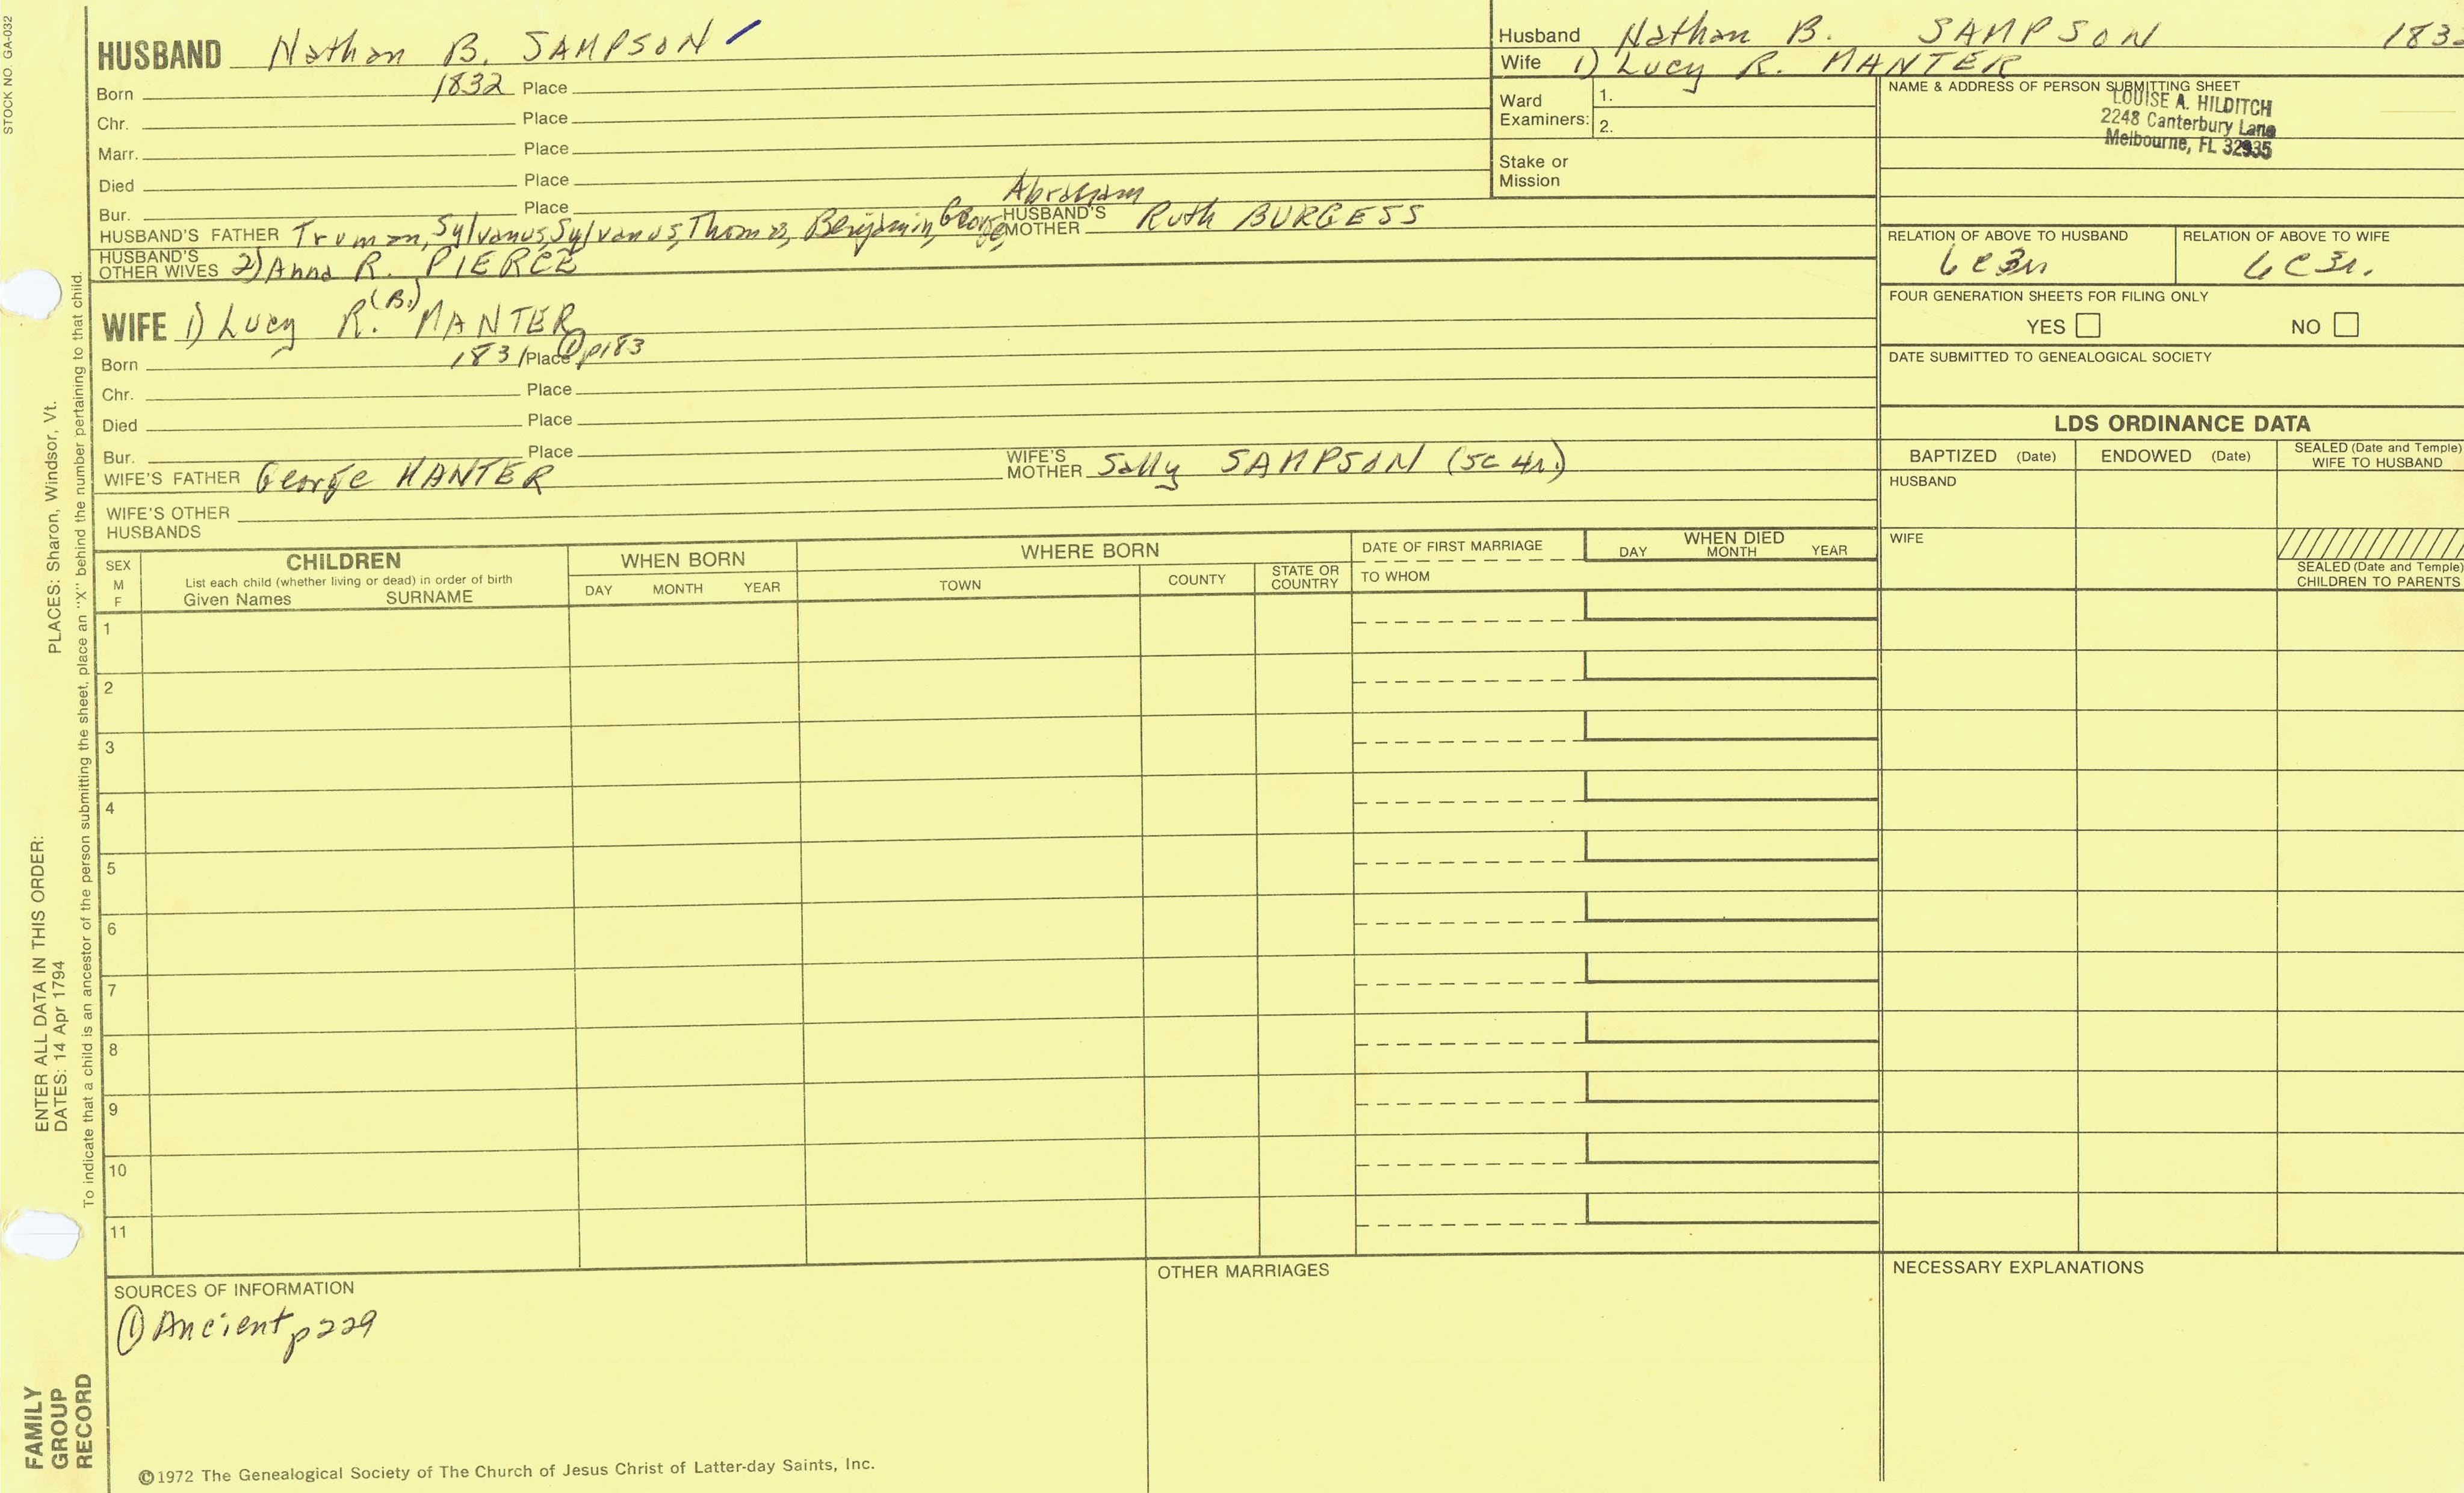 STOCK NO. GA-032
HUSBAND Nathan B. SAMPSON
Born 1832 Place
Chr. Place
Marr. Place
Died Place
Bur. Place
Abraham
HUSBAND'S FATHER Truman, Sylvanus, Sylvanus, Thomas, Benjamin, George, HUSBAND'S MOTHER Ruth BURGESS
HUSBAND'S OTHER WIVES 2) Anna R. PIERCE
(B.)
WIFE 1) Lucy R. MANTER
Born 1831 Place ① p183
Chr. Place
Died Place
Bur. Place
WIFE'S FATHER George MANTER WIFE'S MOTHER Sally SAMPSON (5c 4r.)
WIFE'S OTHER HUSBANDS
Husband Nathan B. SAMPSON 183
Wife 1) Lucy R. MANTER
Ward Examiners: 1.
2.
Stake or Mission
NAME & ADDRESS OF PERSON SUBMITTING SHEET
LOUISE A. HILDITCH
2248 Canterbury Lane
Melbourne, FL 32935
RELATION OF ABOVE TO HUSBAND RELATION OF ABOVE TO WIFE
6c3r 6c3r.
FOUR GENERATION SHEETS FOR FILING ONLY
YES NO
DATE SUBMITTED TO GENEALOGICAL SOCIETY
LDS ORDINANCE DATA
BAPTIZED (Date) ENDOWED (Date) SEALED (Date and Temple) WIFE TO HUSBAND
HUSBAND
WIFE
SEALED (Date and Temple) CHILDREN TO PARENTS
SEX M F
CHILDREN
List each child (whether living or dead) in order of birth
Given Names SURNAME
WHEN BORN
DAY MONTH YEAR
WHERE BORN
TOWN COUNTY STATE OR COUNTRY
DATE OF FIRST MARRIAGE
TO WHOM
WHEN DIED
DAY MONTH YEAR
1
2
3
4
5
6
7
8
9
10
11
SOURCES OF INFORMATION
① Ancient p229
OTHER MARRIAGES
NECESSARY EXPLANATIONS
©1972 The Genealogical Society of The Church of Jesus Christ of Latter-day Saints, Inc.
FAMILY
GROUP
RECORD
ENTER ALL DATA IN THIS ORDER: PLACES: Sharon, Windsor, Vt.
DATES: 14 Apr 1794
To indicate that a child is an ancestor of the person submitting the sheet, place an "X" behind the number pertaining to that child.